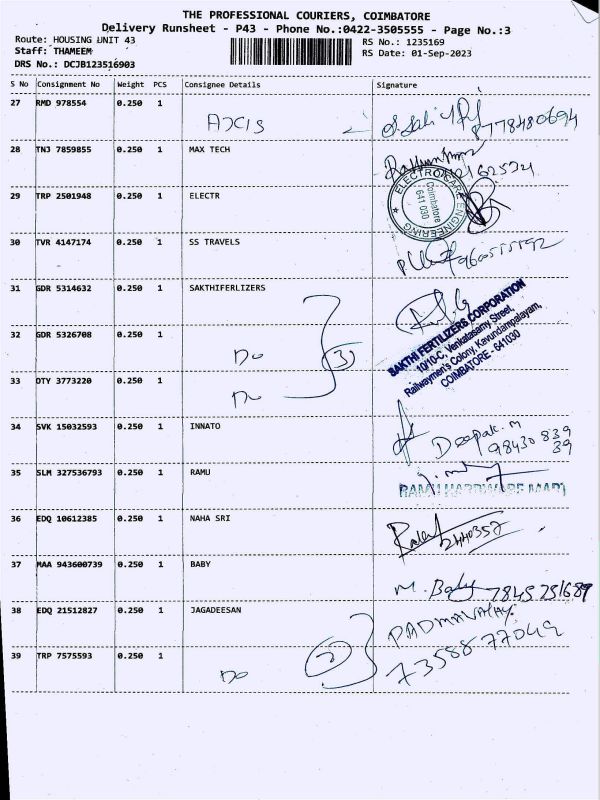 THE PROFESSIONAL COURIERS, COIMBATORE
Delivery Runsheet - P43 - Phone No.:0422-3505555 - Page No.:3
Route: HOUSING UNIT 43
RS No.: 1235169
Staff: THAMEEM
RS Date: 01-Sep-2023
DRS No.: DCJB123516903
S No Consignment No Weight PCS Consignee Details Signature
27 RMD 978554 0.250 1 AXIS 8778480694
28 TNJ 7859855 0.250 1 MAX TECH
29 TRP 2501948 0.250 1 ELECTR
ELECTRO CARE ENGINEERING
Coimbatore
641 030
30 TVR 4147174 0.250 1 SS TRAVELS
31 GDR 5314632 0.250 1 SAKTHIFERLIZERS
SAKTHI FERTILIZERS CORPORATION
10/10-C, Venkatasamy Street,
Railwaymen's Colony, Kavundampalayam,
COIMBATORE - 641030
32 GDR 5326708 0.250 1 Do 3
33 OTY 3773220 0.250 1 Do
34 SVK 15032593 0.250 1 INNATO Deepak. M
98430 839
39
35 SLM 327536793 0.250 1 RAMU
RAMU HARDWARE MART
36 EDQ 10612385 0.250 1 NAHA SRI 2440357
37 MAA 943600739 0.250 1 BABY M. Baby 7845251689
38 EDQ 21512827 0.250 1 JAGADEESAN PADMAVATHY
73588 77049
39 TRP 7575593 0.250 1 Do 2